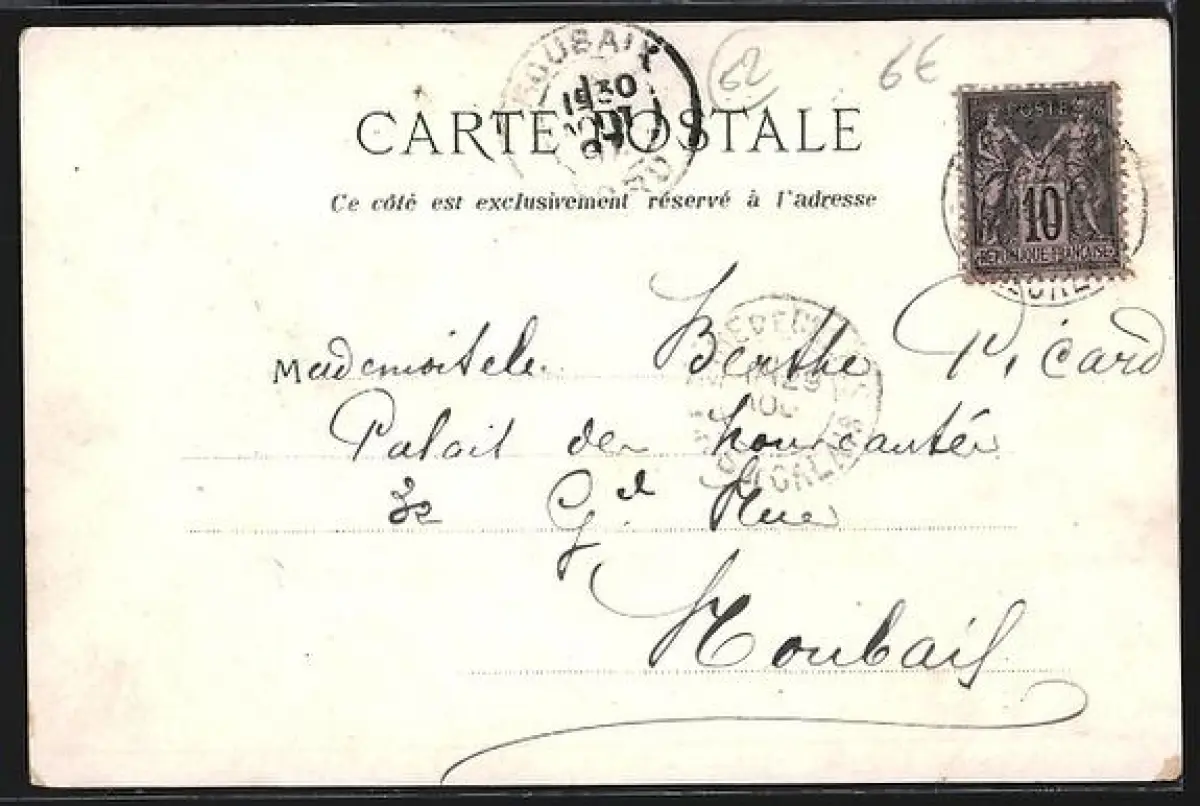 ROUBAIX
62
6€
1E 30
POSTES
CARTE POSTALE
10
Ce côté est exclusivement réservé à l'adresse
REPUBLIQUE FRANÇAISE
Mademoiselle Berthe Picard
Palais des nouveautés
32 Gde Rue
Roubaix